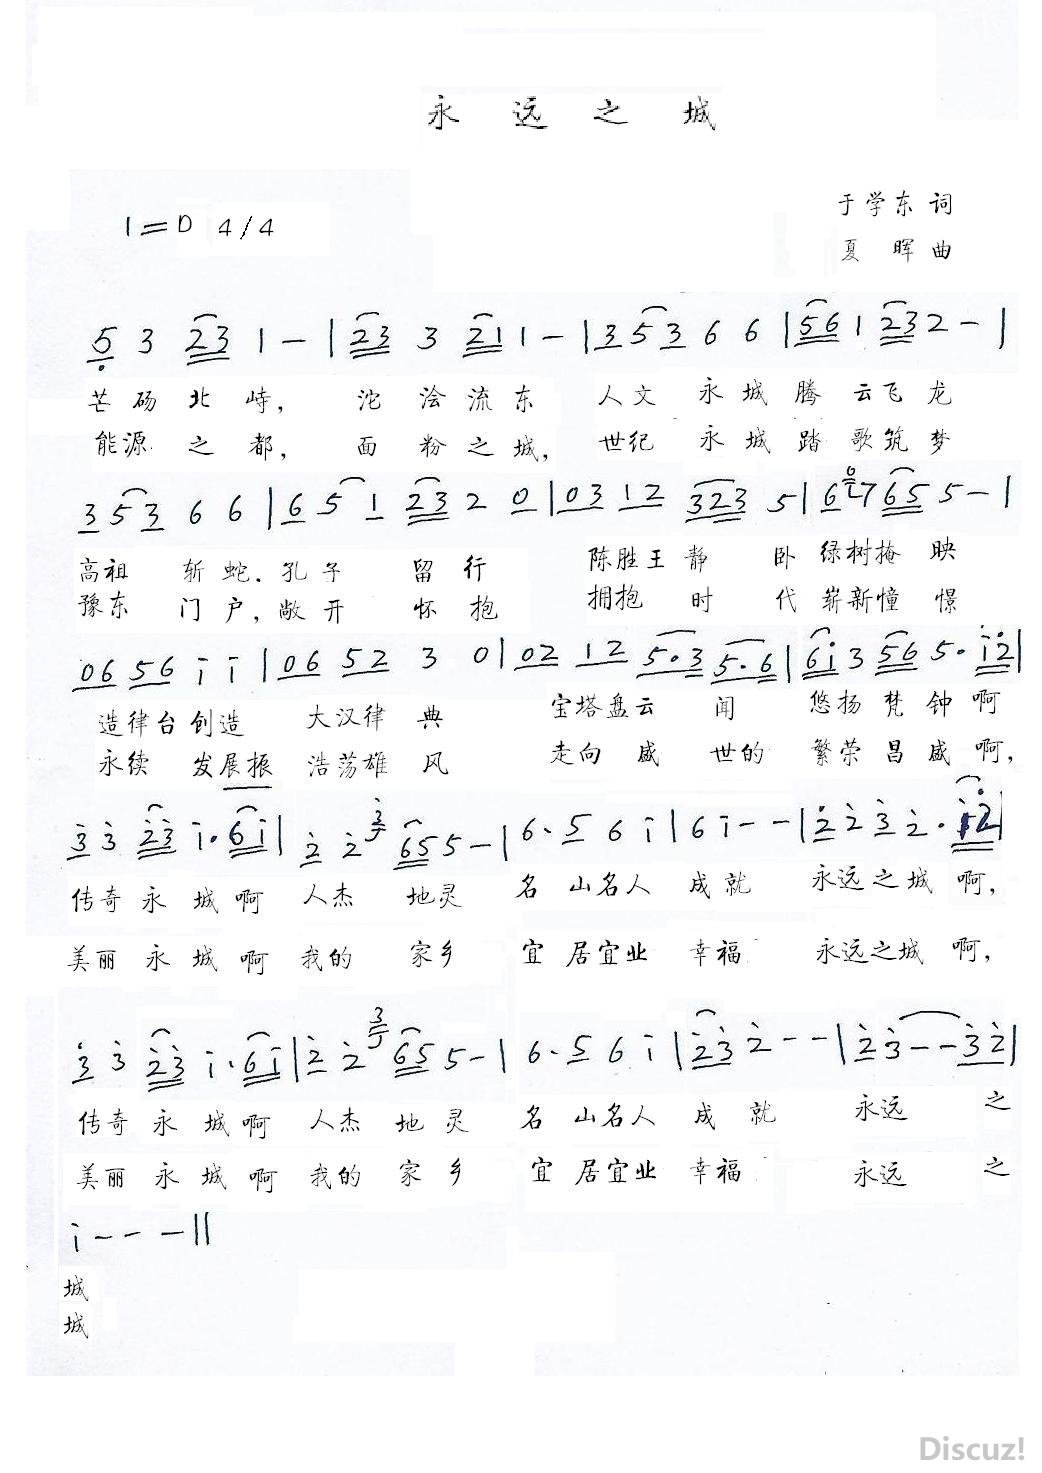 永远之城
于学东 词
1=D 4/4
夏晖 曲
5 3 23 1 - | 23 3 21 1 - | 3 5 3 6 6 | 56 1 23 2 - |
芒砀北峙， 沱浍流东 人文永城腾云飞龙
能源之都， 面粉之城， 世纪永城踏歌筑梦
3 5 3 6 6 | 6 5 1 23 2 0 | 03 12 323 5 | 6 i7 65 5 - |
高祖斩蛇．孔子留行 陈胜王静卧绿树掩映
豫东门户，敞开怀抱 拥抱时代崭新憧憬
06 56 i i | 06 52 3 0 | 02 12 5·3 5·6 | 6i 3 56 5· i2 |
造律台创造 大汉律典 宝塔盘云闻 悠扬梵钟啊
永续发展振 浩荡雄风 走向盛世的 繁荣昌盛啊，
3 3 23 i· 6i | 2 2 3 65 5 - | 6· 5 6 i | 6 i - - | 2 2 3 2· i2 |
传奇永城啊 人杰地灵 名山名人成就 永远之城啊，
美丽永城啊 我的家乡 宜居宜业幸福 永远之城啊，
3 3 23 i· 6i | 2 2 3 65 5 - | 6· 5 6 i | 23 2 - - | 2 3 - - 3 2 |
传奇永城啊 人杰地灵 名山名人成就 永远之
美丽永城啊 我的家乡 宜居宜业幸福 永远之
i - - - ||
城
城
Discuz!